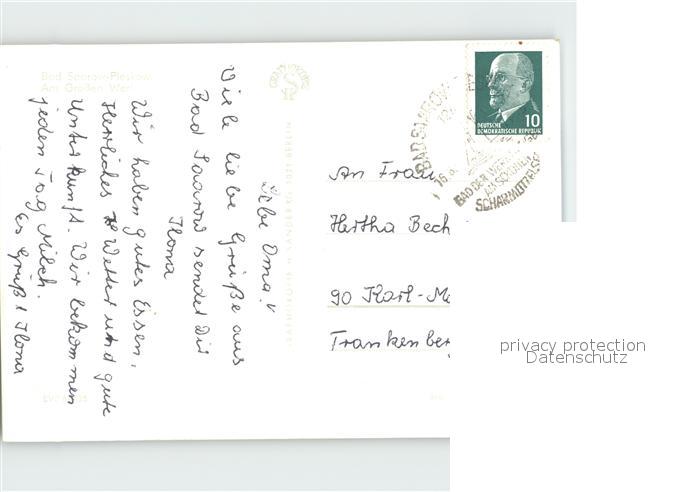 Bad Saarow-Pieskow
Am Großen Wer
Liebe Oma!
Viele liebe Grüße aus
Bad Saarow sendet Dir
Ilona
Wir haben gutes Essen,
Herrliches Wetter und gute
Unterkunft. Wir bekommen
jeden Tag Milch.
Es Grüßt Ilona
An Frau
Hertha Bech
90 Karl-Ma
Frankenber
10
DEUTSCHE
DEMOKRATISCHE REPUBLIK
BAD SAAROW
BAD DER
AM SCHÖNEN
SCHARMÜTZELSEE
privacy protection
Datenschutz